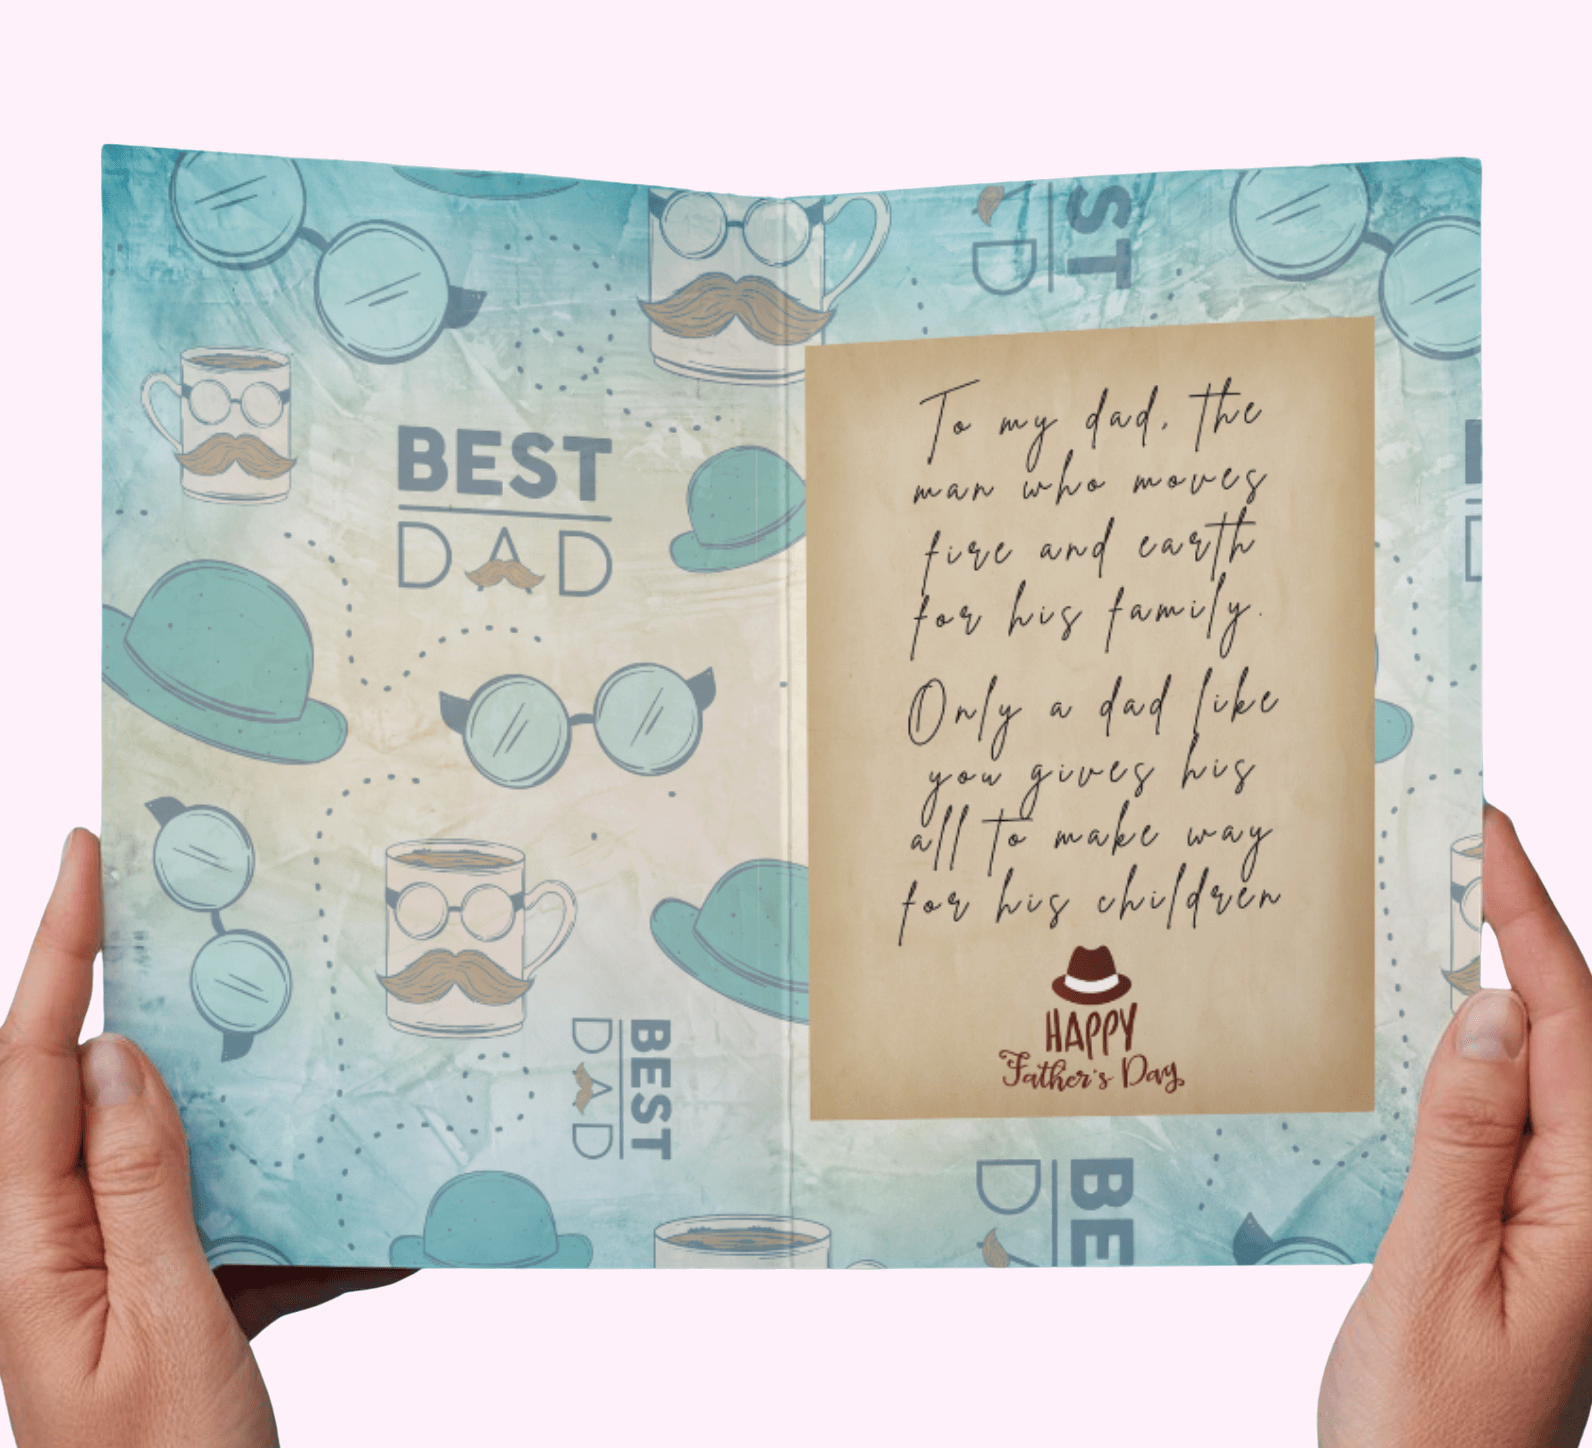 BEST
DAD
BEST
DAD
ST
D
To my dad, the
man who moves
fire and earth
for his family.
Only a dad like
you gives his
all to make way
for his children
HAPPY
Father's Day
BE
D